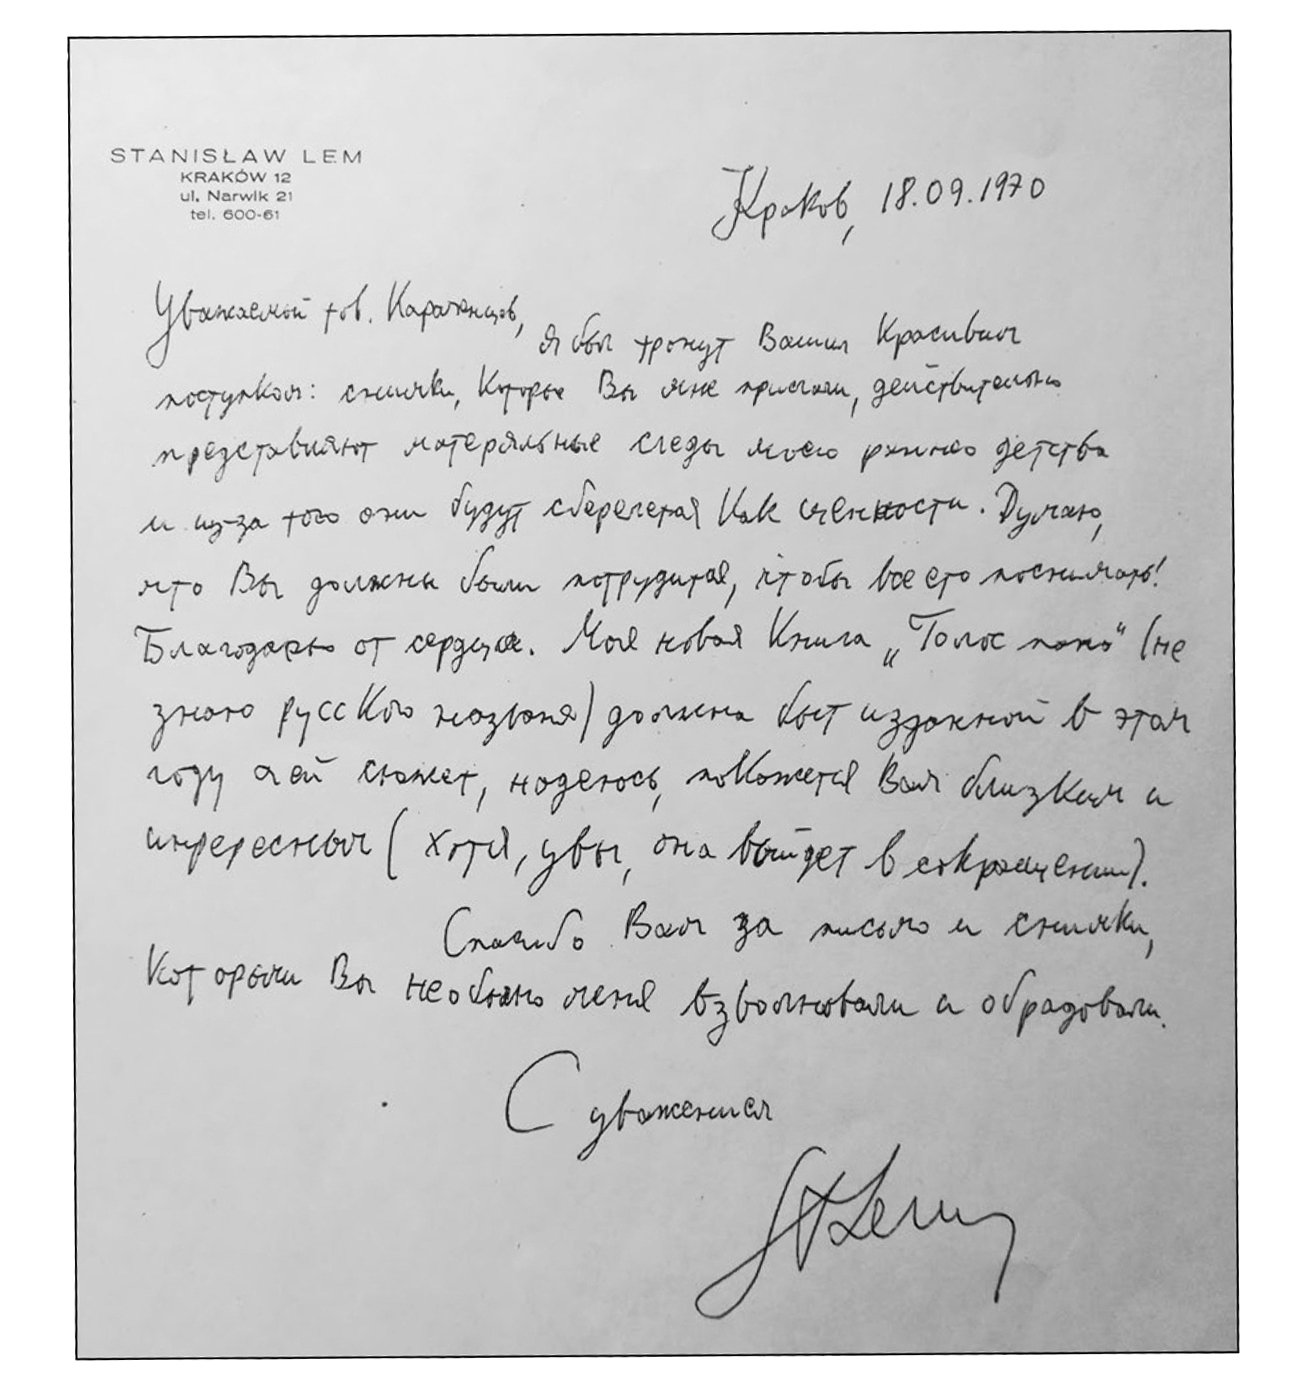 STANISŁAW LEM
KRAKÓW 12
ul. Narwik 21
tel. 600-61
Краков, 18.09.1970
Уважаемой тов.
Я был тронут Вашим Красивым
поступком: снимки, Которые Вы мне прислали, действительно
представляют матеряльные следы моего детства
и из-за того они будут Как ценности. Думаю,
что Вы должны были потрудится, чтобы все это поснимать!
Благодарю от сердца. Моя новая Книга „Голос пана“ (не
знаю русского названя) должна быт изданной в этом
году и ей сюжет, надеюсь, покажется Вам близким и
(хотя, увы, она выйдет в сокращении).
Спасибо Вам за письмо и снимки,
Которыми Вы меня взволновали и обрадовали.
С уважением
StLem